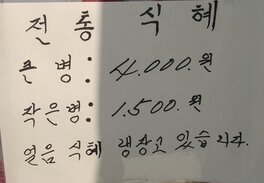 전 통 식 혜
큰 병: 4.000.원
작은병: 1.500.원
얼음 식혜 냉장고 있습니다.